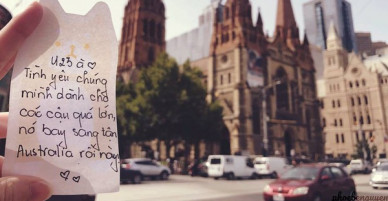 U23 à ♡
Tình yêu chúng
mình dành cho
các cậu quá lớn,
nó bay sang tận
Australia rồi này
♡♡
phoebenguyen